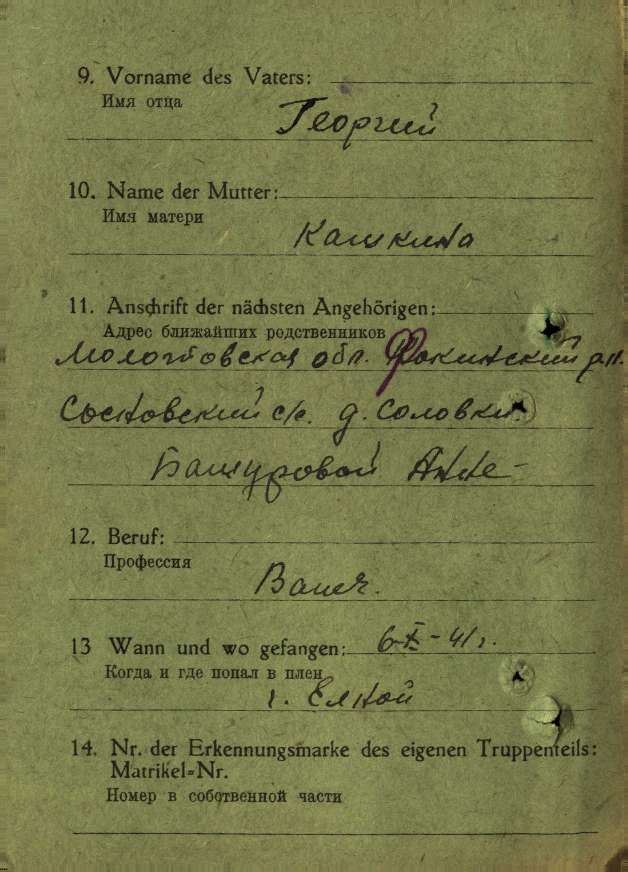 9. Vorname des Vaters:
Имя отца
Георгий
10. Name der Mutter:
Имя матери
Кашкина
11. Anschrift der nächsten Angehörigen:
Адрес ближайших родственников
обл.
Сосновский с/с. д. Соловки.
Башуровой Анне
12. Beruf:
Профессия
13 Wann und wo gefangen: 6-X-41г.
Когда и где попал в плен
г. Елной
14. Nr. der Erkennungsmarke des eigenen Truppenteils:
Matrikel=Nr.
Номер в собственной части